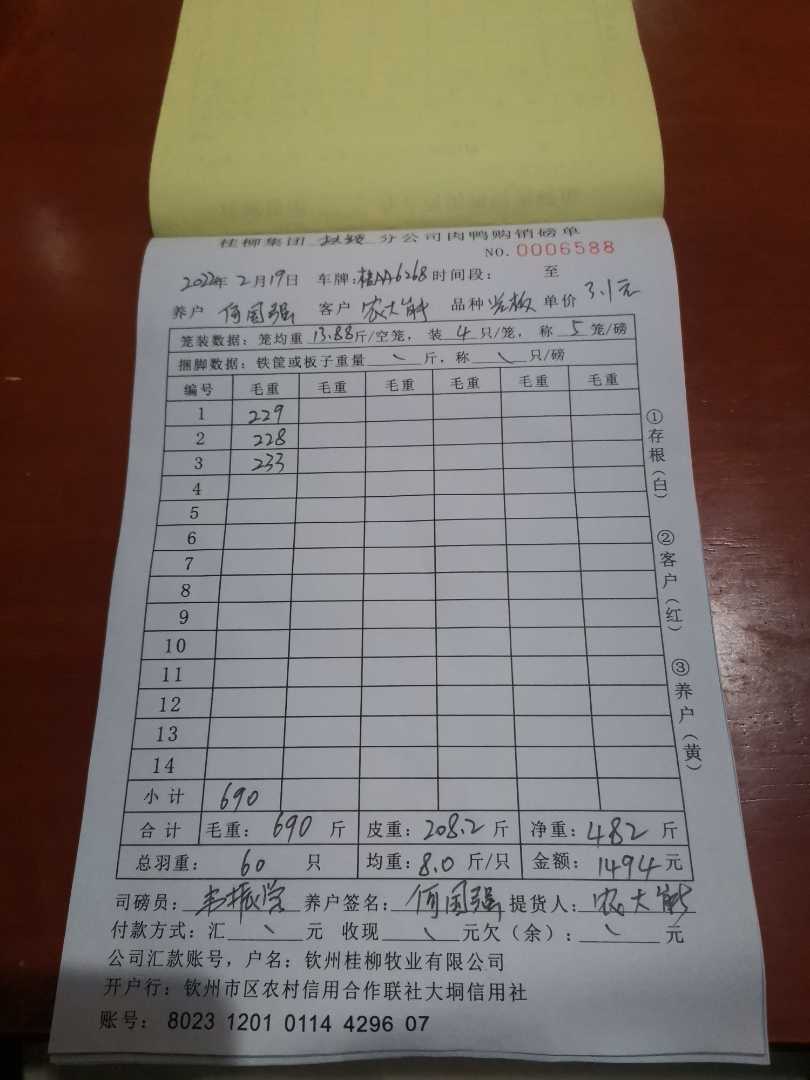 桂柳集团 分公司肉鸭购销磅单
NO.0006588
2022年 2月19日 车牌:桂AA6268 时间段: 至
养户 何国强 客户 农大 品种 光板 单价 3.1元
笼装数据:笼均重 13.88 斤/空笼, 装 4 只/笼, 称 5 笼/磅
捆脚数据:铁筐或板子重量 \ 斤,称 \ 只/磅
编号 毛重 毛重 毛重 毛重 毛重 毛重
1 229
2 228
3 233
4
5
6
7
8
9
10
11
12
13
14
小计 690
合计 毛重: 690 斤 皮重: 208.2 斤 净重: 482 斤
总羽重: 60 只 均重: 8.0 斤/只 金额: 1494 元
司磅员: 韦振学 养户签名: 何国强 提货人: 农大
付款方式:汇 \ 元 收现 \ 元欠(余): \ 元
公司汇款账号,户名:钦州桂柳牧业有限公司
开户行:钦州市区农村信用合作联社大垌信用社
账号: 8023 1201 0114 4296 07
①存根(白)
②客户(红)
③养户(黄)